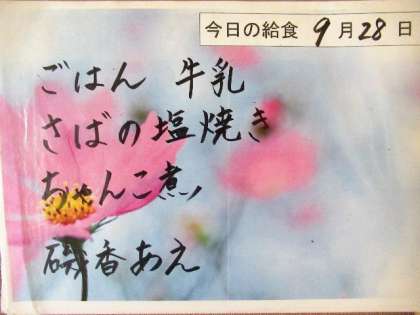 今日の給食 9月28日
ごはん 牛乳
さばの塩焼き
ちゃんこ煮
磯香あえ